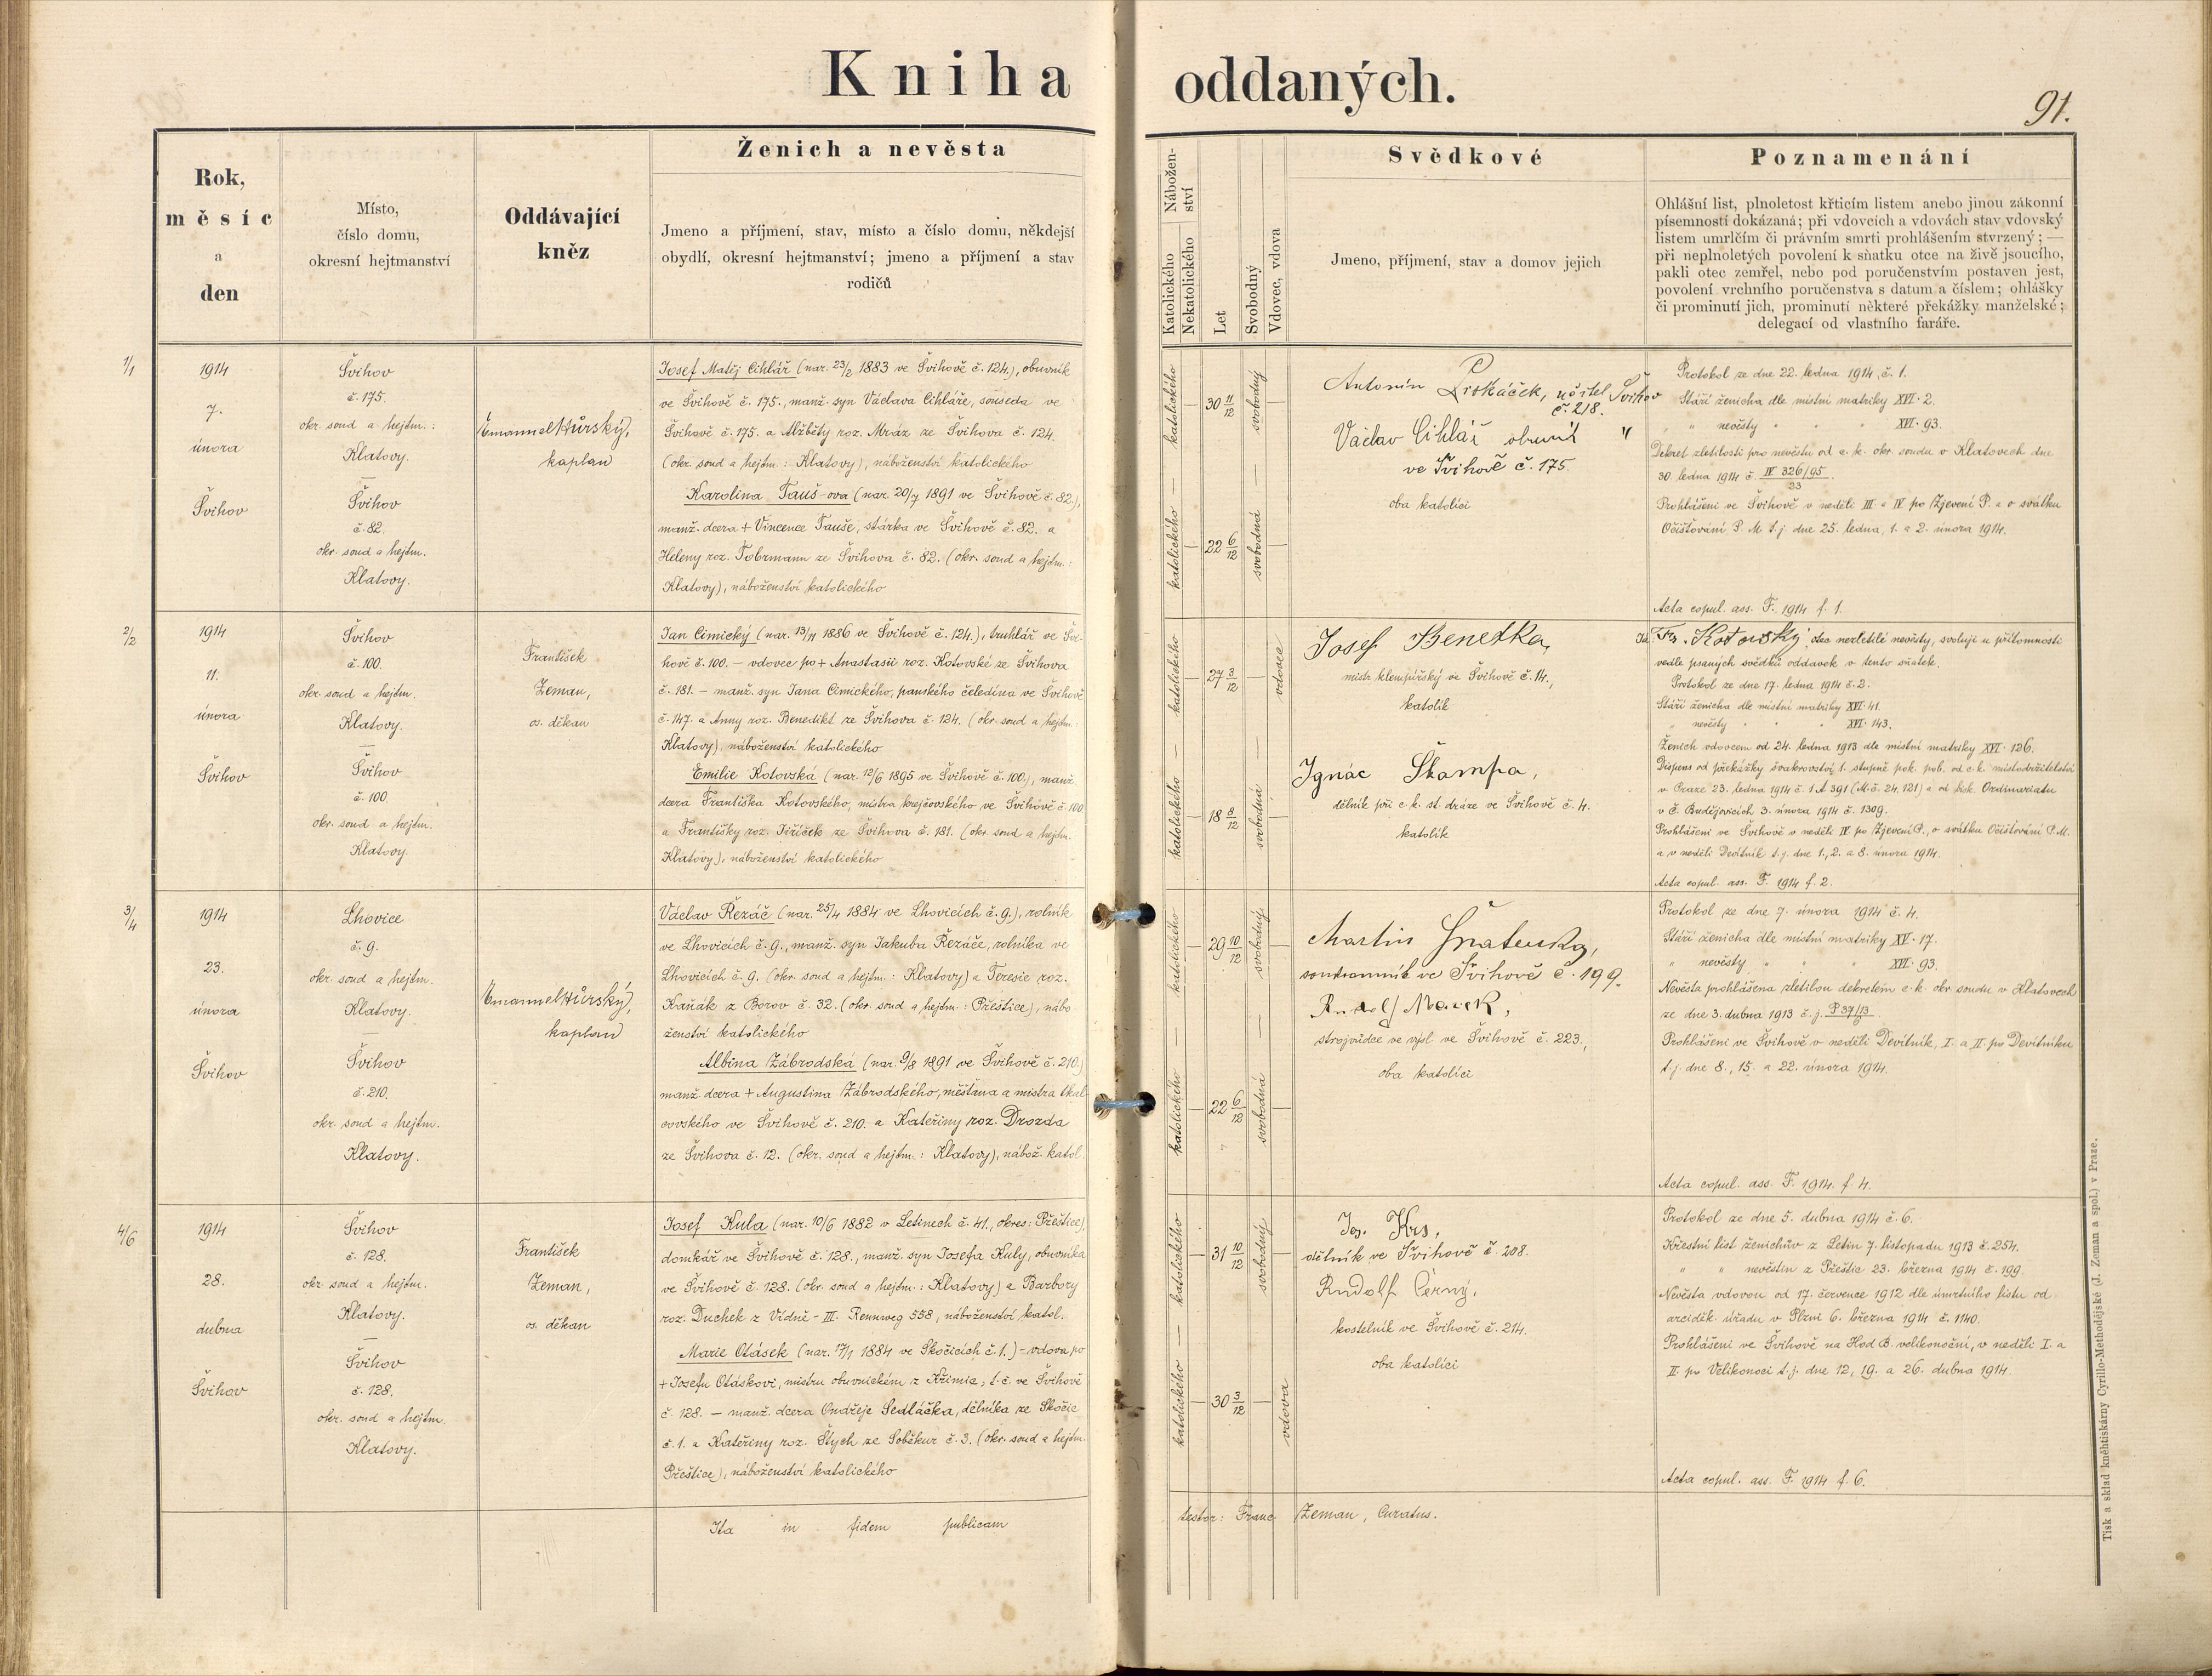 Kniha oddaných.
91.
Rok,
měsíc
a
den
Místo,
číslo domu,
okresní hejtmanství
Oddávající
kněz
Ženich a nevěsta
Jmeno a příjmení, stav, místo a číslo domu, někdejší
obydlí, okresní hejtmanství; jmeno a příjmení a stav
rodičů
Nábožen-
ství
Katolického
Nekatolického
Let
Svobodný
Vdovec, vdova
Svědkové
Jmeno, příjmení, stav a domov jejich
Poznamenání
Ohlášní list, plnoletost křticím listem anebo jinou zákonní
písemností dokázaná; při vdovcích a vdovách stav vdovský
listem umrlčím či právním smrti prohlášením stvrzený; —
při neplnoletých povolení k sňatku otce na živě jsoucího,
pakli otec zemřel, nebo pod poručenstvím postaven jest,
povolení vrchního poručenstva s datum a číslem; ohlášky
či prominutí jich, prominutí některé překážky manželské;
delegací od vlastního faráře.
1/1
1914
7.
února
Švihov
Švihov
č. 175.
okr. soud a hejtm.:
Klatovy.
—
Švihov
č. 82.
okr. soud a hejtm.
Klatovy.
Emanuel Hůrský,
kaplan
Josef Matěj Cihlář (nar. 23/2 1883 ve Švihově č. 124.), obuvník
ve Švihově č. 175., manž. syn Václava Cihláře, souseda ve
Švihově č. 175. a Alžběty roz. Mráz ze Švihova č. 124.
(okr. soud a hejtm.: Klatovy), náboženství katolického
Karolina Tauš-ova (nar. 20/7 1891 ve Švihově č. 82.),
manž. dcera + Vincence Tauše, stárka ve Švihově č. 82. a
Heleny roz. Tobrmann ze Švihova č. 82. (okr. soud a hejtm.:
Klatovy), náboženství katolického
katolického — katolického
30 11/12
22 6/12
svobodný — svobodná
Antonín Piskáček, učitel Švihov
č. 218.
Václav Cihlář obuvník "
ve Švihově č. 175.
oba katolíci
Protokol ze dne 22. ledna 1914, č. 1.
Stáří ženicha dle místní matriky XVI. 2.
" " nevěsty " " " XVI. 93.
Dekret zletilosti pro nevěstu od c. k. okr. soudu v Klatovech dne
30. ledna 1914 č. IV 326/95
23
Prohlášeni ve Švihově v neděli III. a IV. po Zjevení P. a o svátku
Očišťování P. M. t. j. dne 25. ledna, 1. a 2. února 1914.
Acta copul. ass. F. 1914 f. 1.
2/2
1914
11.
února
Švihov
Švihov
č. 100.
okr. soud a hejtm.
Klatovy.
—
Švihov
č. 100.
okr. soud a hejtm.
Klatovy.
František
Zeman,
os. děkan
Jan Cimický (nar. 13/11 1886 ve Švihově č. 124.), truhlář ve Švi-
hově č. 100. – vdovec po + Anastasii roz. Kotovské ze Švihova
č. 181. – manž. syn Jana Cimického, panského čeledína ve Švihově
č. 147. a Anny roz. Benedikt ze Švihova č. 124. (okr. soud a hejtm.
Klatovy), náboženství katolického
Emilie Kotovská (nar. 12/6 1895 ve Švihově č. 100.), manž.
dcera Františka Kotovského, mistra krejčovského ve Švihově č. 100
a Františky roz. Jiříček ze Švihova č. 181. (okr. soud a hejtm.
Klatovy), náboženství katolického
katolického — katolického
27 3/12
18 8/12
vdovec
— svobodná
Josef Benetka,
mistr klempířský ve Švihově č. 14.,
katolík
Ignác Škampa,
dělník při c. k. st. dráze ve Švihově č. 4.
katolík
Já Fr. Kotovský, otec nezletilé nevěsty, svoluji u přítomnosti
vedle psaných svědků oddavek v tento sňatek.
Protokol ze dne 17. ledna 1914 č. 2.
Stáří ženicha dle místní matriky XVI. 41.
" nevěsty " " " XVI. 143.
Ženich vdovcem od 24. ledna 1913 dle místní matriky XVI. 126.
Dispens od překážky švakrovství 1. stupně pok. pob. od c. k. místodržitelství
v Praze 23. ledna 1914 č. 1 A 391 (M. č. 24, 121) a od bisk. Ordinariatu
v Č. Budějovicích 3. února 1914 č. 1309.
Prohlášeni ve Švihově v neděli IV. po Zjevení P., o svátku Očišťování P. M.
a v neděli Devítník t. j. dne 1., 2. a 8. února 1914.
Acta copul. ass. F. 1914 f. 2.
3/4
1914
23.
února
Švihov
Lhovice
č. 9.
okr. soud a hejtm.
Klatovy.
—
Švihov
č. 210.
okr. soud a hejtm.
Klatovy.
Emanuel Hůrský,
kaplan
Václav Řezáč (nar. 25/4 1884 ve Lhovicích č. 9.), rolník
ve Lhovicích č. 9., manž. syn Jakuba Řezáče, rolníka ve
Lhovicích č. 9. (okr. soud a hejtm.: Klatovy) a Teresie roz.
Kaňák z Borov č. 32. (okr. soud a hejtm.: Přeštice), nábo-
ženství katolického
Albina Zábrodská (nar. 9/8 1891 ve Švihově č. 210.)
manž. dcera + Augustina Zábrodského, měšťana a mistra tkal-
covského ve Švihově č. 210. a Kateřiny roz. Drozda
ze Švihova č. 12. (okr. soud a hejtm.: Klatovy), nábož. katol.
katolického — katolického
29 10/12
22 6/12
svobodný — svobodná
Martin
soukromník ve Švihově č. 199.
Rudolf Marek,
strojvůdce ve výsl. ve Švihově č. 223.,
oba katolíci
Protokol ze dne 7. února 1914 č. 4.
Stáří ženicha dle místní matriky XV. 17.
" nevěsty " " " XVI. 93.
Nevěsta prohlášena zletilou dekretem c. k. okr. soudu v Klatovech
ze dne 3. dubna 1913 č. j. P 37/13
Prohlášeni ve Švihově v neděli Devítník, I. a II. po Devítníku
t. j. dne 8., 15. a 22. února 1914.
Acta copul. ass. F. 1914. f. 4.
4/6
1914
28.
dubna
Švihov
Švihov
č. 128.
okr. soud a hejtm.
Klatovy.
—
Švihov
č. 128.
okr. soud a hejtm.
Klatovy.
František
Zeman,
os. děkan
Josef Kula (nar. 10/6 1882 v Letinech č. 41., okres: Přeštice)
domkář ve Švihově č. 128., manž. syn Josefa Kuly, obuvníka
ve Švihově č. 128. (okr. soud a hejtm.: Klatovy) a Barbory
roz. Duchek z Vídně – III. Rennweg 558, náboženství katol.
Marie Otásek (nar. 17/1 1884 ve Skočicích č. 1.) – vdova po
+ Josefu Otáskovi, mistru obuvnickém z Křimic, t. č. ve Švihově
č. 128. – manž. dcera Ondřeje Sedláčka, dělníka ze Skočic
č. 1. a Kateřiny roz. Štych ze Soběkur č. 3. (okr. soud a hejtm.
Přeštice), náboženství katolického
katolického — katolického
31 10/12
30 3/12
svobodný —
vdova
Jos. Krs,
dělník ve Švihově č. 208.
Rudolf Černý,
kostelník ve Švihově č. 214.
oba katolíci
Protokol ze dne 5. dubna 1914 č. 6.
Křestní list ženichův z Letin 7. listopadu 1913 č. 254.
" " nevěstin z Přeštic 23. března 1914 č. 199.
Nevěsta vdovou od 17. července 1912 dle úmrtního listu od
arciděk. úřadu v Plzni 6. března 1914 č. 1140.
Prohlášeni ve Švihově na Hod B. velikonoční, v neděli I. a
II. po Velikonoci t. j. dne 12, 19. a 26. dubna 1914.
Acta copul. ass. F. 1914 f. 6.
Ita in fidem publicam testor: Franc. Zeman, Curatus.
Tisk a sklad kněhtiskárny Cyrillo-Methodějské (J. Zeman a spol.) v Praze.